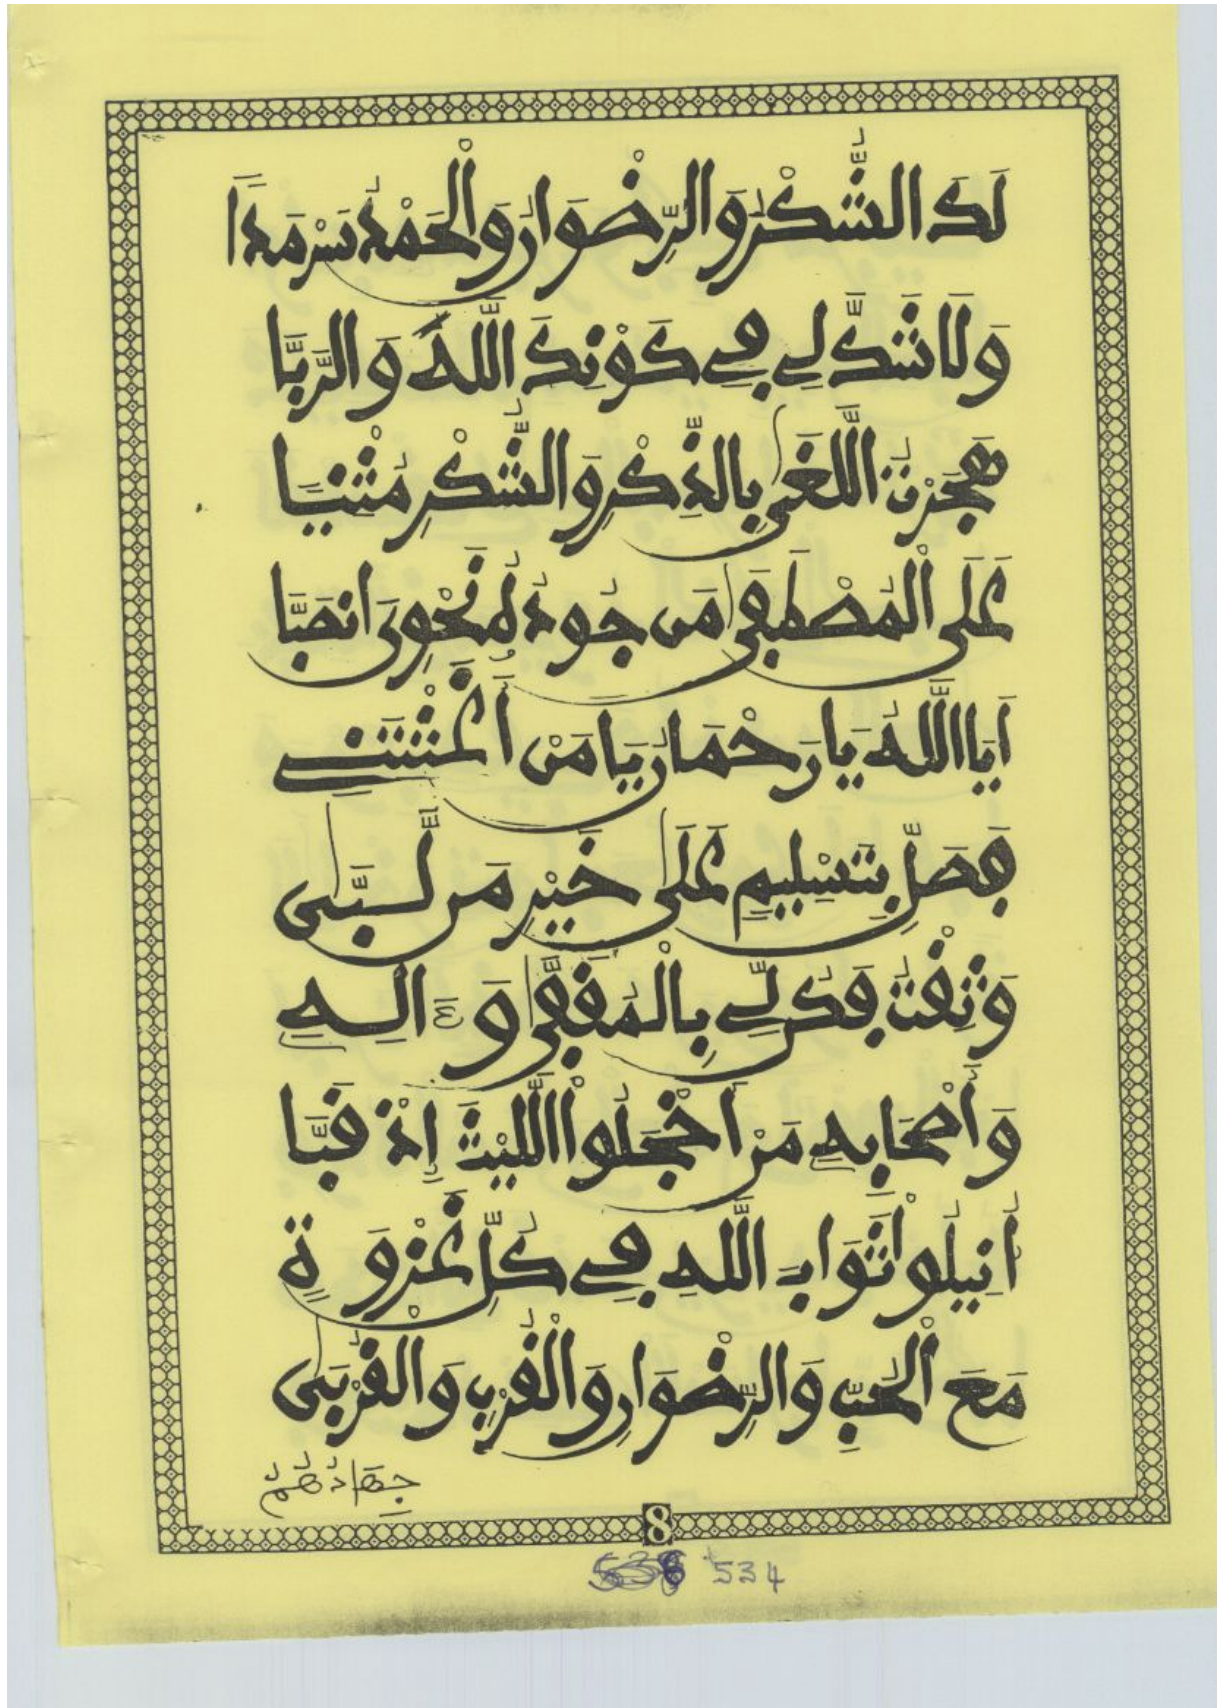 لَكَ الشُّكْرُ وَالرِّضْوَانُ وَالْحَمْدُ سَرْمَدَا
وَلَا شَكَّ لِي فِي كَوْنِكَ اللَّهَ وَالرَّبَّا
هَجَرْتُ اللَّغَى بِالذِّكْرِ وَالشُّكْرِ مُثْنِيًا
عَلَى الْمُصْطَفَى مَن جُودُهُ نَحْوِيَ انصَبَّا
أَيَا اللَّهُ يَا رَحْمَانُ يَا مَنْ أَغَثْتَنِي
فَصَلِّ بِتَسْلِيمٍ عَلَى خَيْرِ مَن لَبَّى
وَثِقْتُ فَكُن لِّي بِالْمُقَفَّى وَءَالِهِ
وَأَصْحَابِهِ مَنْ أَخْجَلُوا اللَّيْثَ إِذْ قَبَّا
أُنِيلُوا ثَوَابَ اللَّهِ فِي كُلِّ غَزْوَةٍ
مَعَ الْحُبِّ وَالرِّضْوَانِ وَالْقُرْبِ وَالْقُرْبَى
جِهَادُهُمُ
8
534